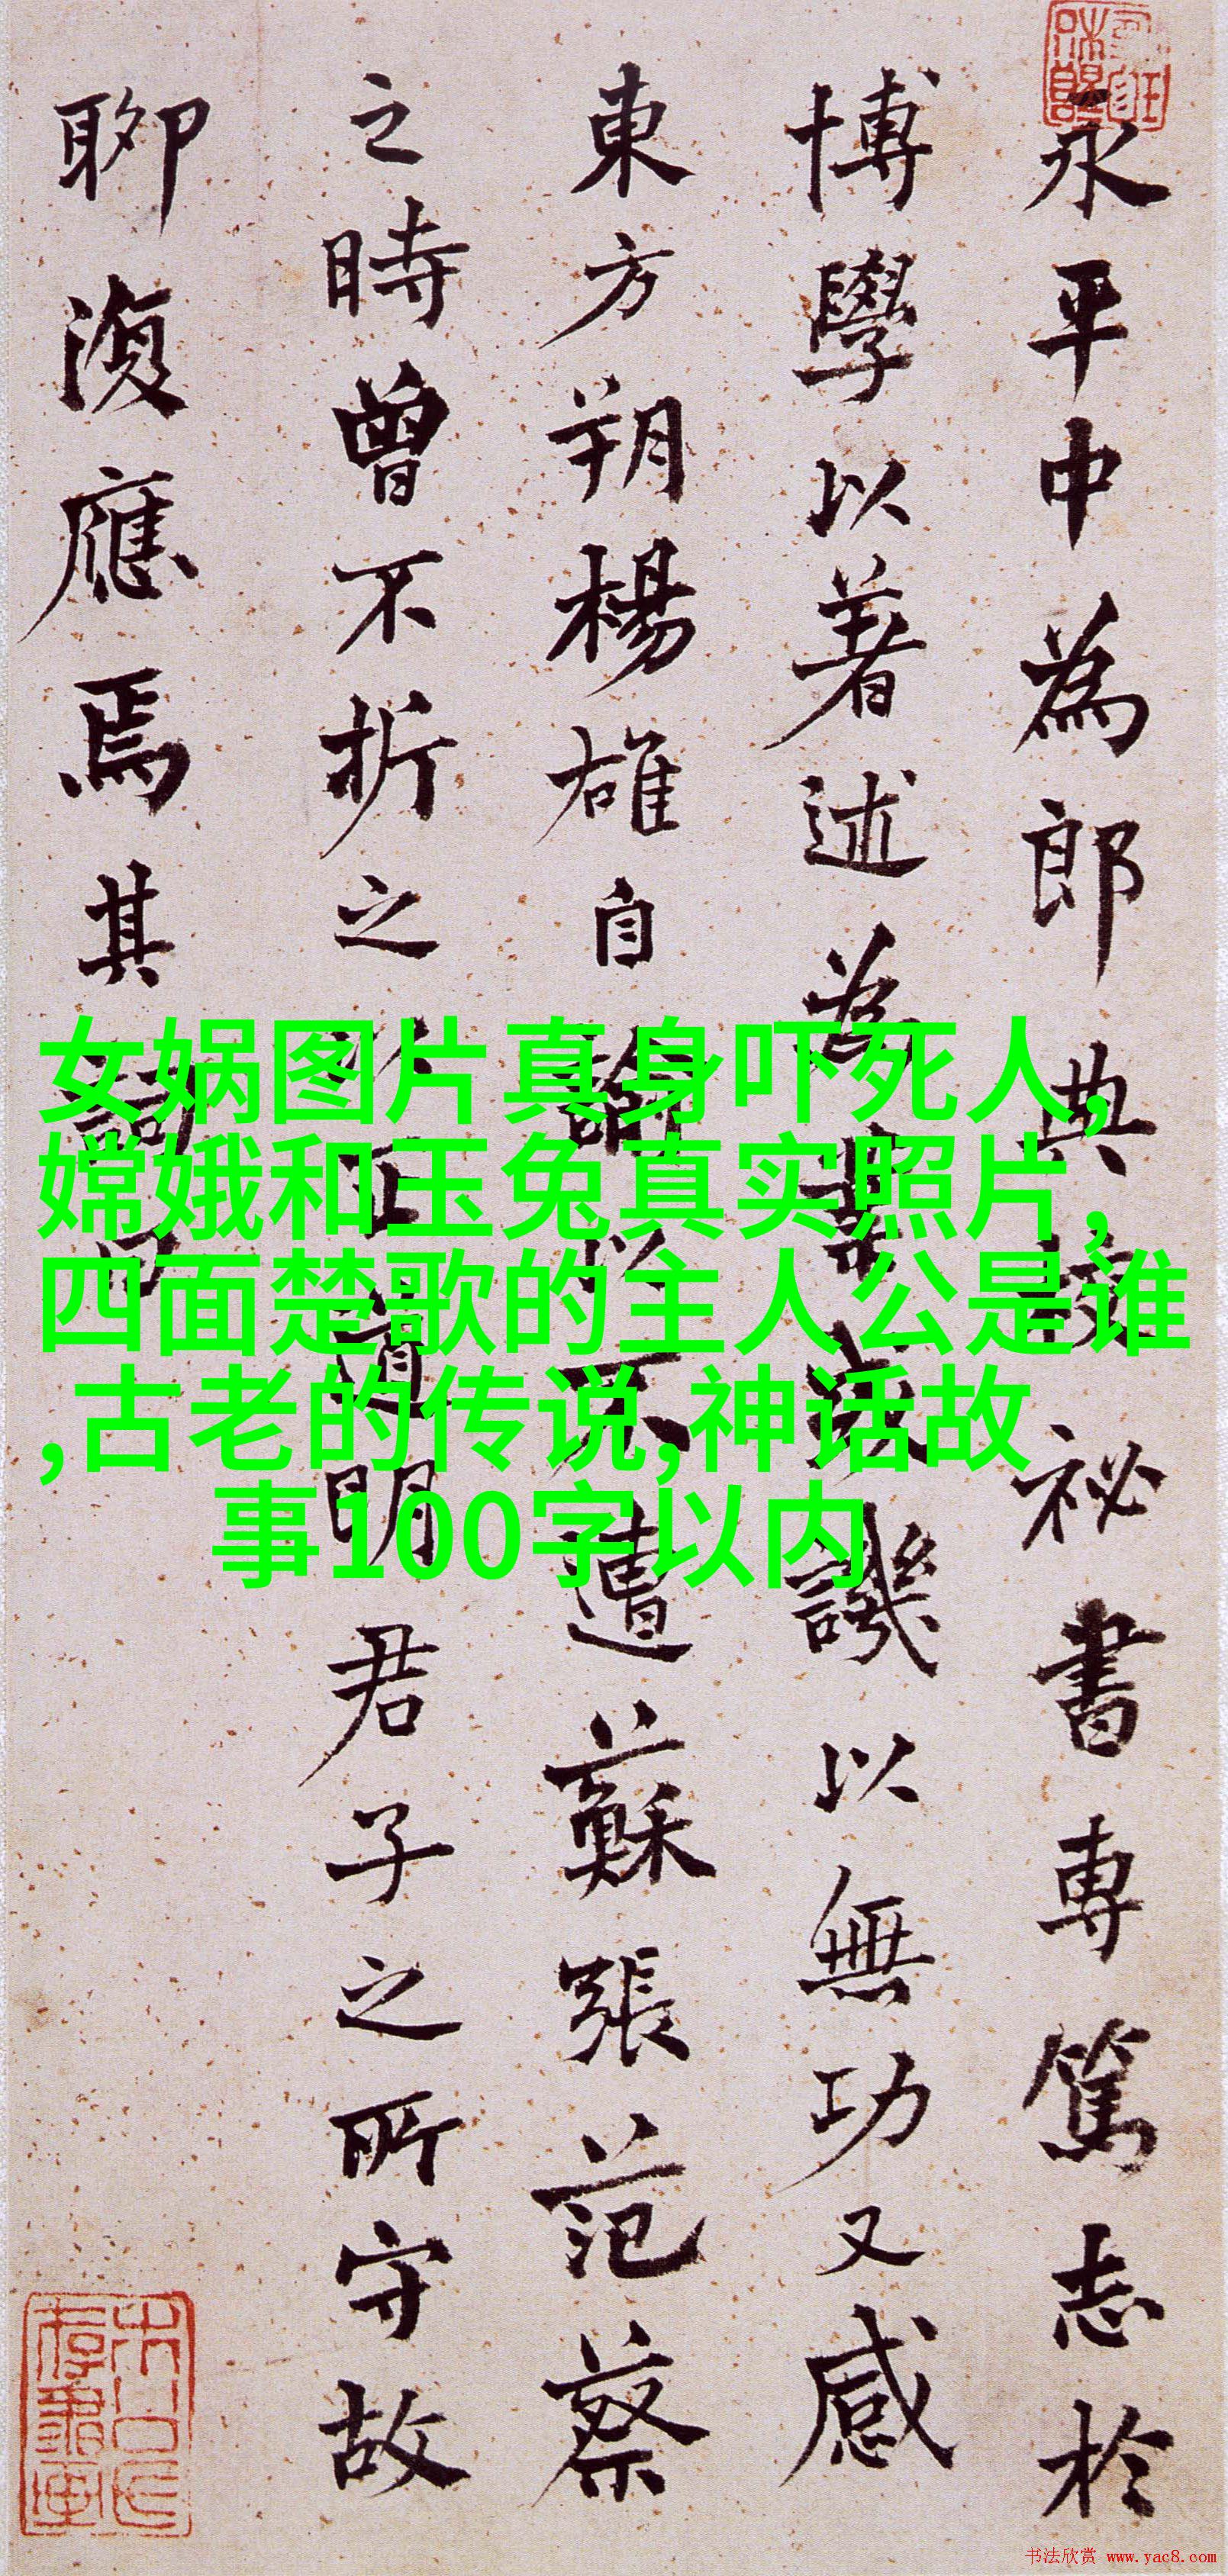 永平中為郎典校祕書專篤志於
博學以著述為業或譏以無功又感
東方朔楊雄自諭以不遭蘇張范蔡
之時曾不折之以正道明君子之所守故
聊復應焉其詞曰
女娲图片真身吓死人,
嫦娥和玉兔真实照片,
四面楚歌的主人公是谁
,古老的传说,神话故
事100字以内
书法欣赏 www.yac8.com